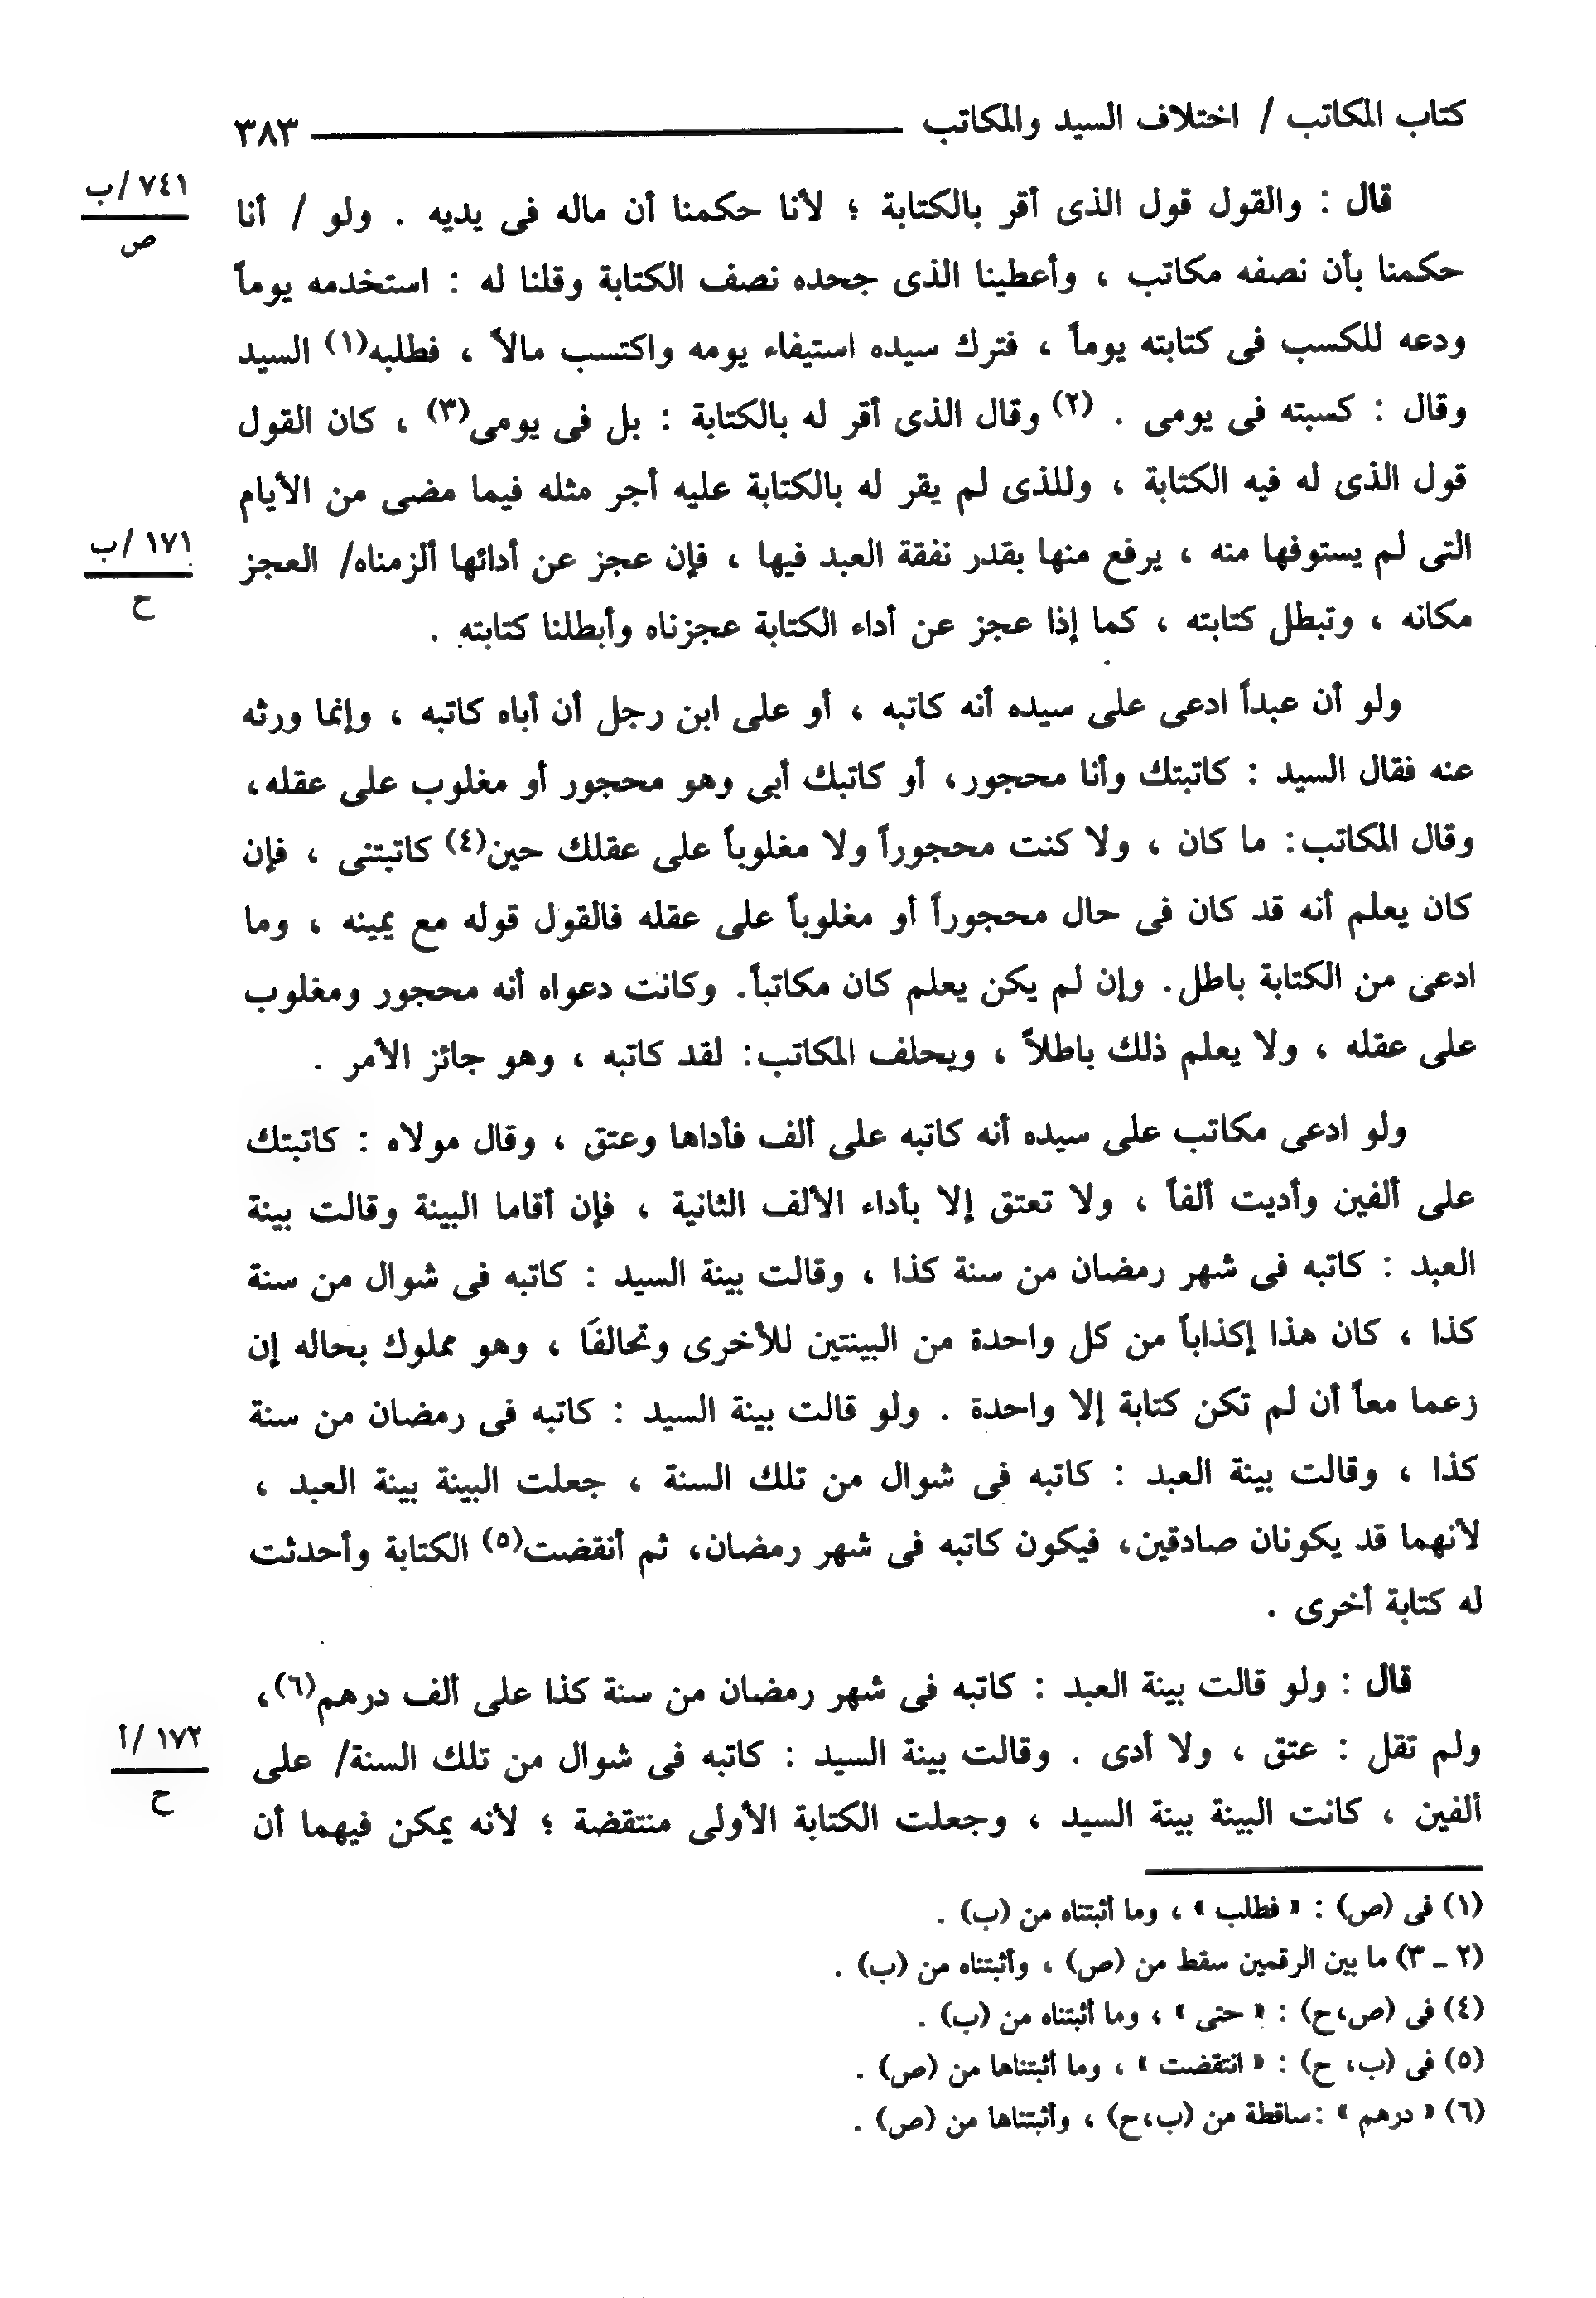 كتاب المكاتب / اختلاف السيد والمكاتب ٣٨٣
قال : والقول قول الذى أقر بالكتابة ؛ لأنا حكمنا أن ماله فى يديه . ولو / أنا
٧٤١ /ب
ص
حكمنا بأن نصفه مكاتب ، وأعطينا الذى جحده نصف الكتابة وقلنا له : استخدمه يوماً
ودعه للكسب فى كتابته يوماً ، فترك سيده استيفاء يومه واكتسب مالاً ، فطلبه(١) السيد
وقال : كسبته فى يومى . (٢) وقال الذى أقر له بالكتابة : بل فى يومى(٣) ، كان القول
قول الذى له فيه الكتابة ، وللذى لم يقر له بالكتابة عليه أجر مثله فيما مضى من الأيام
التى لم يستوفها منه ، يرفع منها بقدر نفقة العبد فيها ، فإن عجز عن أدائها ألزمناه/ العجز
١٧١ /ب
ح
مكانه ، وتبطل كتابته ، كما إذا عجز عن أداء الكتابة عجزناه وأبطلنا كتابته .
ولو أن عبداً ادعى على سيده أنه كاتبه ، أو على ابن رجل أن أباه كاتبه ، وإنما ورثه
عنه فقال السيد : كاتبتك وأنا محجور، أو كاتبك أبى وهو محجور أو مغلوب على عقله،
وقال المكاتب: ما كان ، ولا كنت محجوراً ولا مغلوباً على عقلك حين(٤) كاتبتنى ، فإن
كان يعلم أنه قد كان فى حال محجوراً أو مغلوباً على عقله فالقول قوله مع يمينه ، وما
ادعى من الكتابة باطل. وإن لم يكن يعلم كان مكاتباً. وكانت دعواه أنه محجور ومغلوب
على عقله ، ولا يعلم ذلك باطلاً ، ويحلف المكاتب: لقد كاتبه ، وهو جائز الأمر .
ولو ادعى مكاتب على سيده أنه كاتبه على ألف فأداها وعتق ، وقال مولاه : كاتبتك
على ألفين وأديت ألفاً ، ولا تعتق إلا بأداء الألف الثانية ، فإن أقاما البينة وقالت بينة
العبد : كاتبه فى شهر رمضان من سنة كذا ، وقالت بينة السيد : كاتبه فى شوال من سنة
كذا ، كان هذا إكذاباً من كل واحدة من البينتين للأخرى وتحالفَا ، وهو مملوك بحاله إن
زعما معاً أن لم تكن كتابة إلا واحدة . ولو قالت بينة السيد : كاتبه فى رمضان من سنة
كذا ، وقالت بينة العبد : كاتبه فى شوال من تلك السنة ، جعلت البينة بينة العبد ،
لأنهما قد يكونان صادقين، فيكون كاتبه فى شهر رمضان، ثم أنقضت(٥) الكتابة وأحدثت
له كتابة أخرى .
قال : ولو قالت بينة العبد : كاتبه فى شهر رمضان من سنة كذا على ألف درهم(٦)،
ولم تقل : عتق ، ولا أدى . وقالت بينة السيد : كاتبه فى شوال من تلك السنة/ على
١٧٢ /أ
ح
ألفين ، كانت البينة بينة السيد ، وجعلت الكتابة الأولى منتقضة ؛ لأنه يمكن فيهما أن
(١) فى (ص) : « فطلب » ، وما أثبتناه من (ب) .
(٢ ـ ٣) ما بين الرقمين سقط من (ص) ، وأثبتناه من (ب) .
(٤) فى (ص،ح) : « حتى » ، وما أثبتناه من (ب) .
(٥) فى (ب، ح) : « انتقضت » ، وما أثبتناها من (ص) .
(٦) « درهم » :ساقطة من (ب،ح) ، وأثبتناها من (ص) .